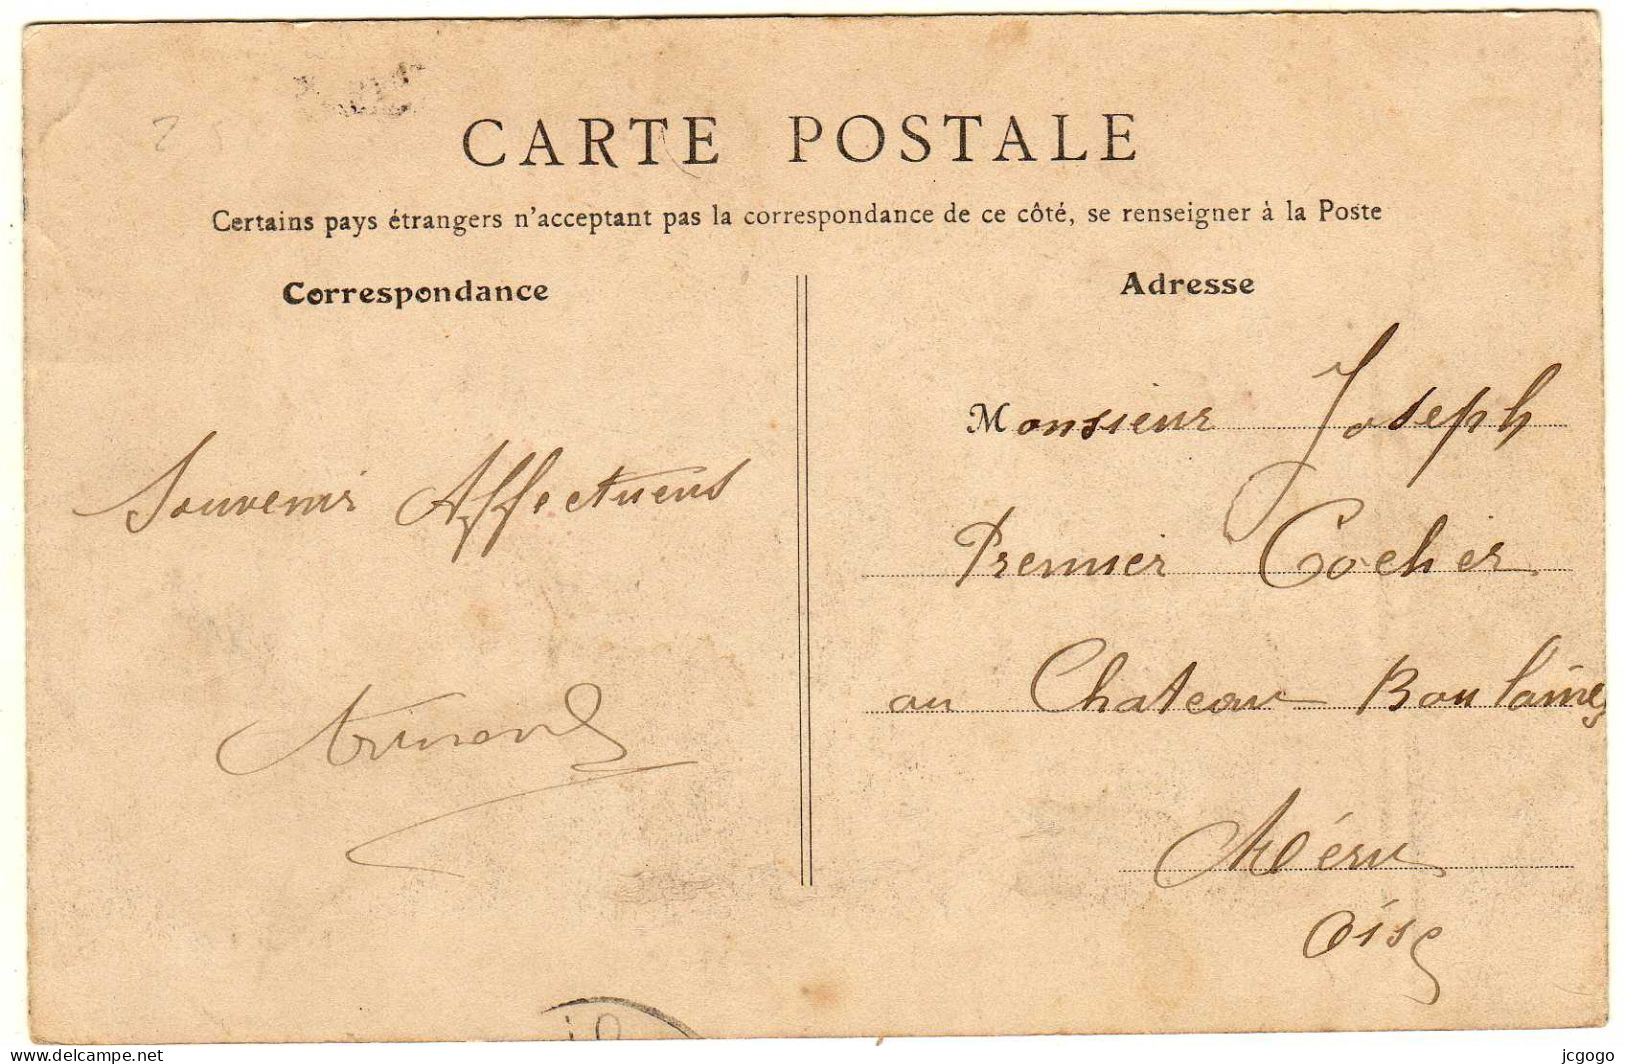 CARTE POSTALE
Certains pays étrangers n'acceptant pas la correspondance de ce côté, se renseigner à la Poste
Correspondance
Adresse
Souvenir Affectueus
Armand
Monsieur Joseph
Premier Cocher
au Chateau Boulaines
Méru
Oise
delcampe.net
jcgogo